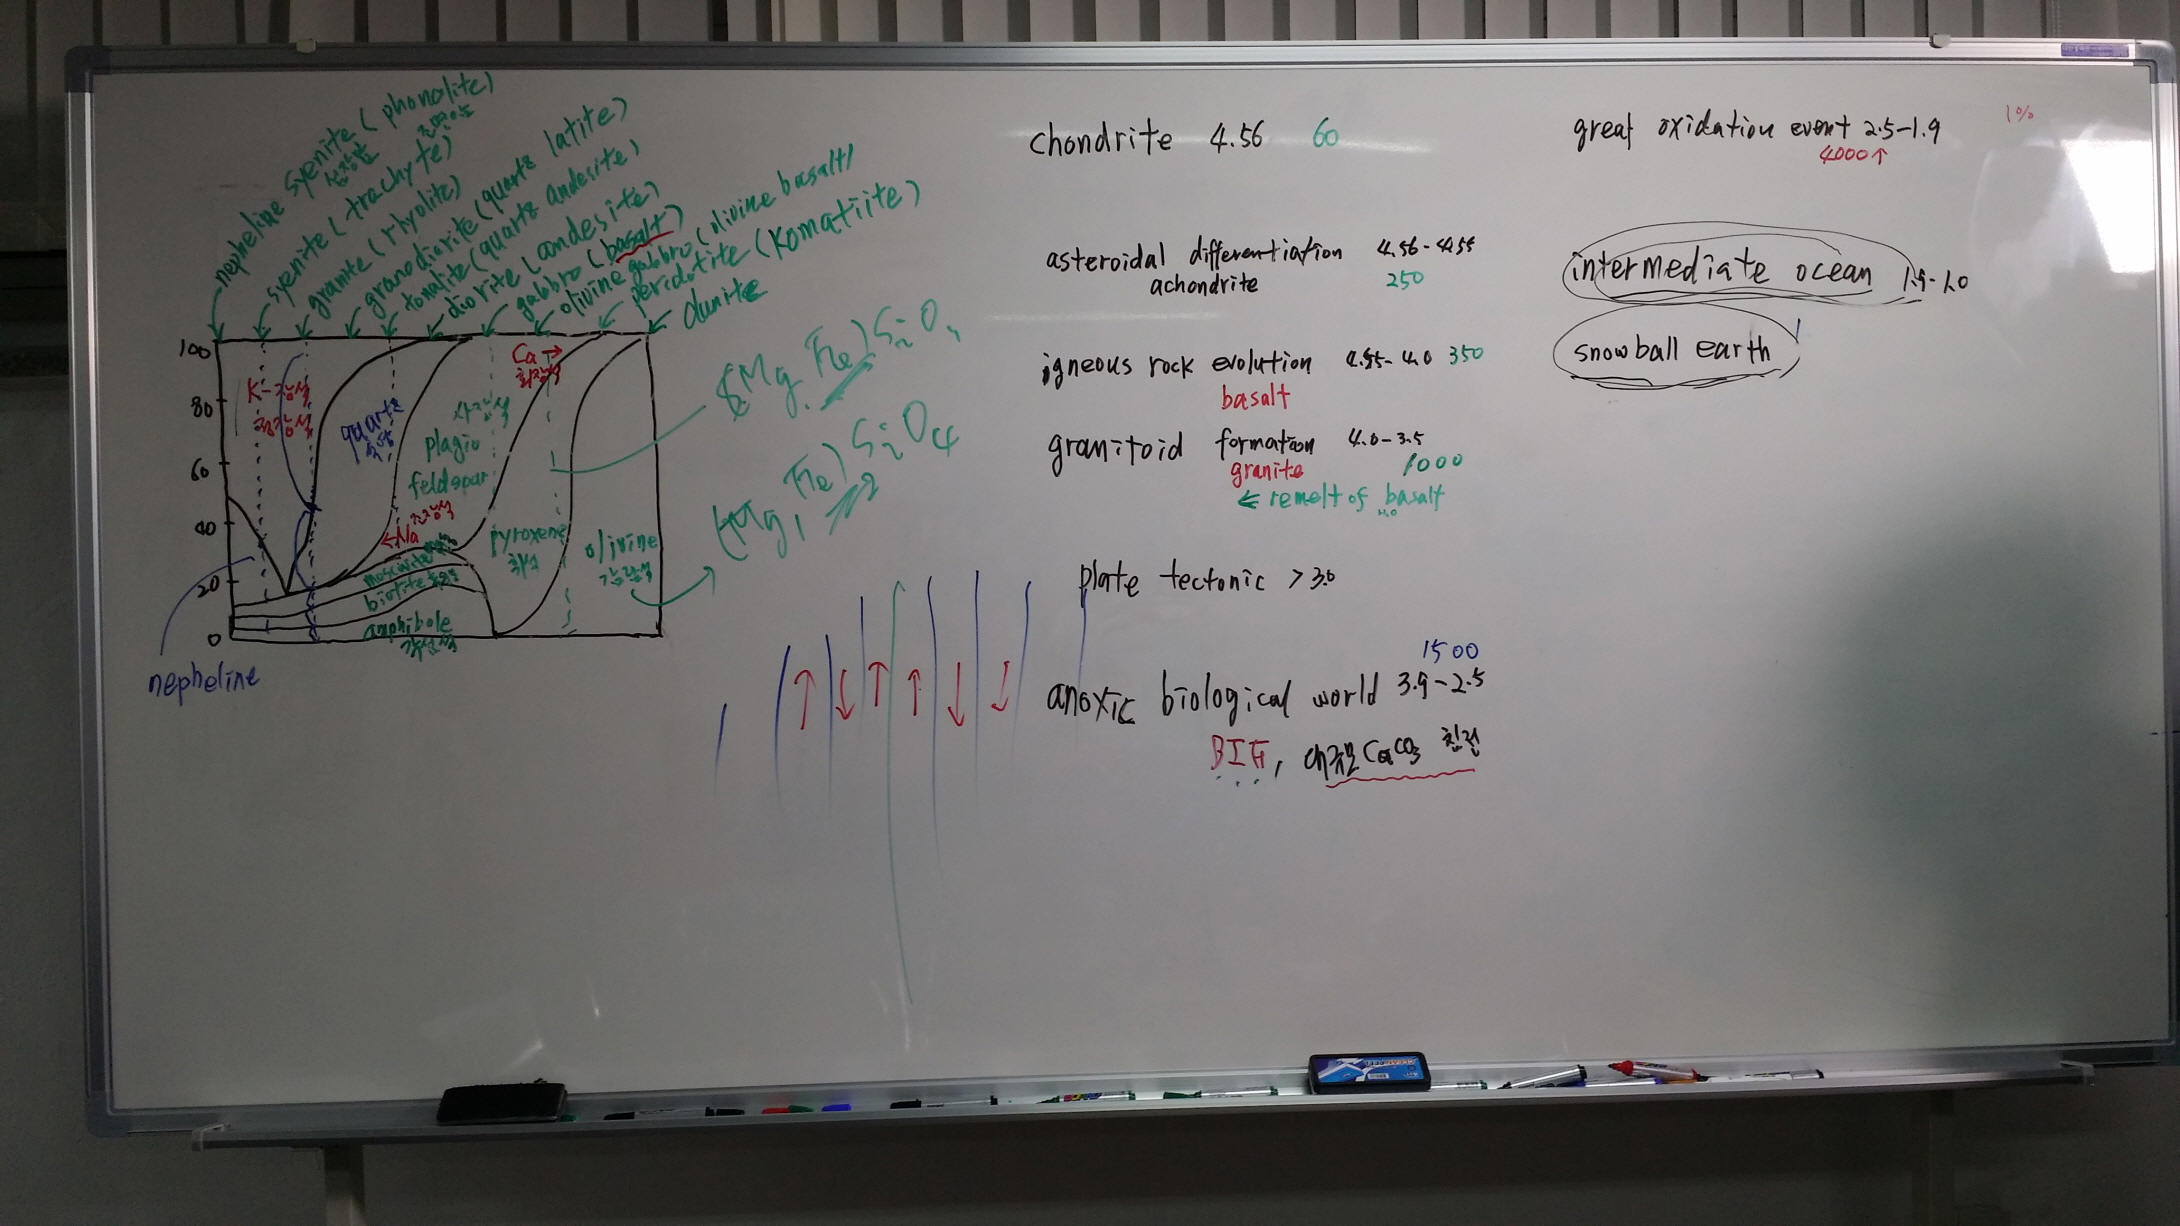 nepheline syenite (phonolite)
syenite (trachyte)
granite (rhyolite)
granodiorite (quartz latite)
tonalite (quartz andesite)
diorite (andesite)
gabbro (basalt)
olivine gabbro (olivine basalt)
peridotite (Komatiite)
dunite
100
80
60
40
20
0
K-장석
정장석
quartz
석영
사장석
plagio
feldspar
Ca →
회장석
조장석
← Na
muscovite
biotite 흑운모
amphibole
각섬석
pyroxene
휘석
olivine
감람석
nepheline
(Mg, Fe)SiO
(Mg, Fe)2SiO4
chondrite 4.56 60
asteroidal differentiation 4.56-4.55
achondrite 250
igneous rock evolution 4.55-4.0 350
basalt
granitoid formation 4.0-3.5
granite 1000
← remelt of basalt
H2O
plate tectonic > 3.0
1500
anoxic biological world 3.9-2.5
BIF, 대규모 CaCO3 침전
great oxidation event 2.5-1.9
4000↑
1%
intermediate ocean 1.9-1.0
snowball earth